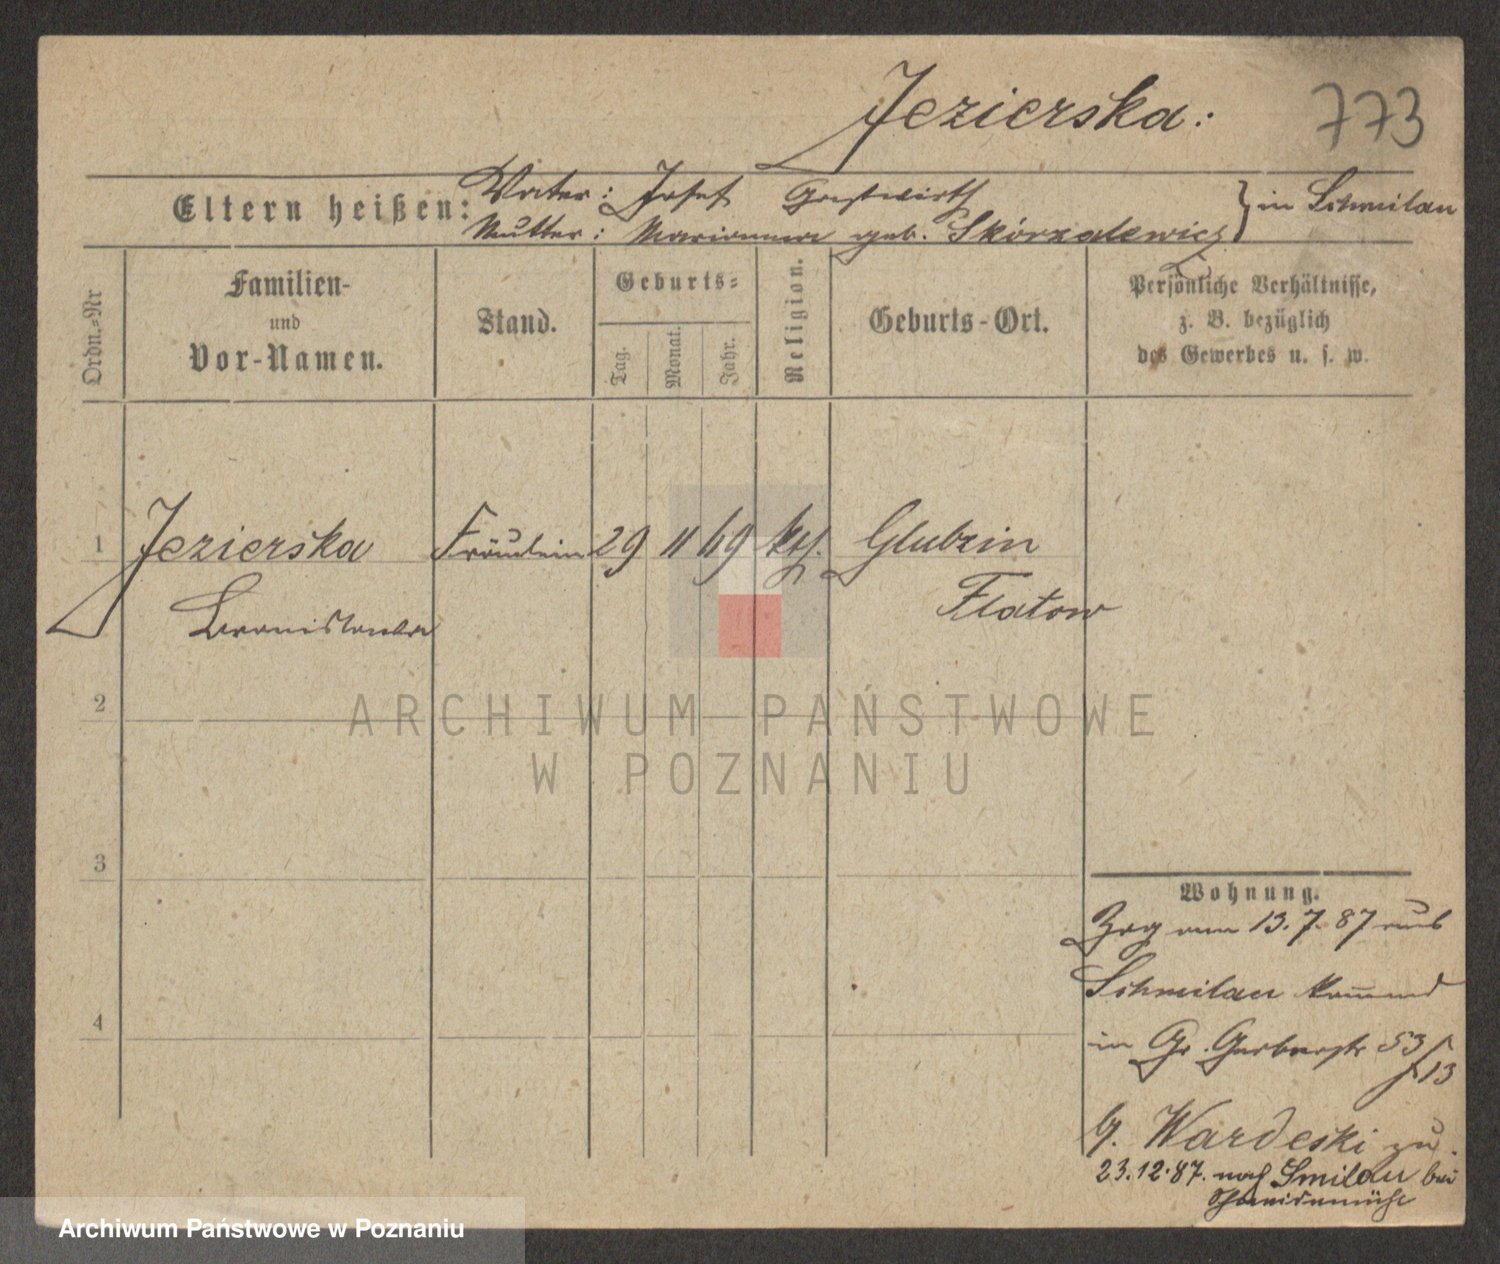 Jezierska:
773
Eltern heißen:
Vater: Josef Gastwirth
Mutter: Marianna geb. Skórzalewicz
in Schmilau
Ordn.=Nr
Familien-
und
Vor-Namen.
Stand.
Geburts=
Tag.
Monat.
Jahr.
Religion.
Geburts-Ort.
Persönliche Verhältnisse,
z. B. bezüglich
des Gewerbes u. s. w.
1
Jezierska Fräulein 29 11 69 kth. Glubzin
Bronislawa Flatow
2
3
4
Wohnung.
Zzg am 13.7.87 aus
Schmilau kommend
in Gr. Gerberstr 53/
13
b. Wardeski zu.
23.12.87. nach Smilau bei
Schneidemühl
ARCHIWUM PAŃSTWOWE
W POZNANIU
Archiwum Państwowe w Poznaniu